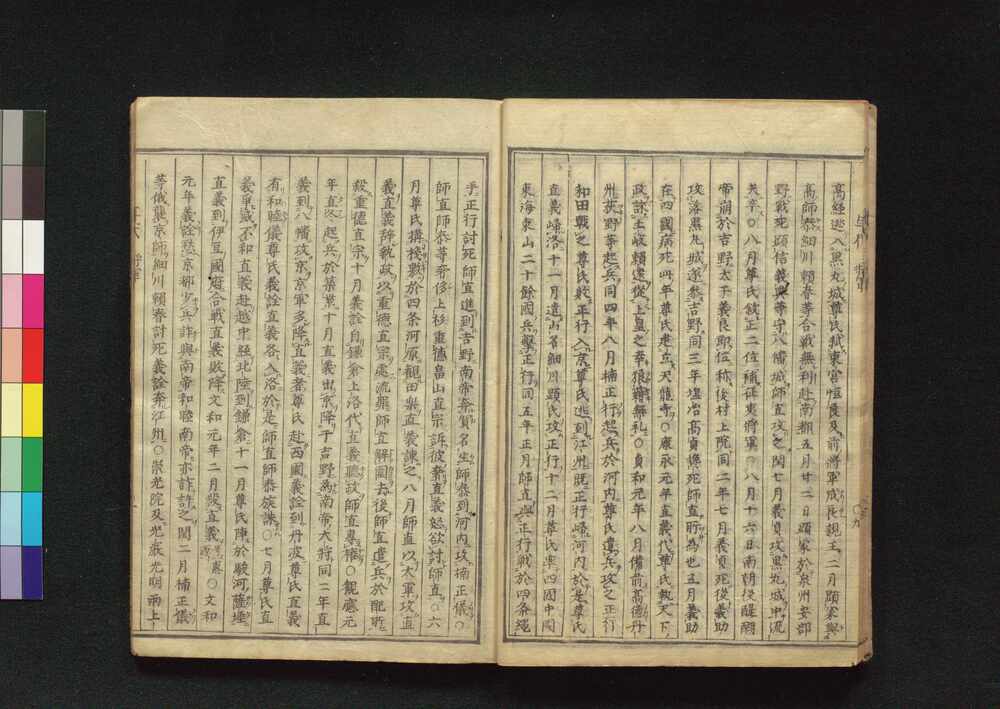 高経逃入黒丸城尊氏弑東宮恒良及前将軍成良親王二月顕家與
高師泰細川頼春等合戦無利赴南都五月廿二日顕家於泉州安部
野戦死顕信義興等守八幡城師直攻之閏七月義貞攻黒丸城中流
矢卒〇八月尊氏叙正二位補征夷将軍〇八月十六日南朝後醍醐
帝崩於吉野太子義良即位称後村上院同二年七月義貞死後義助
攻落黒丸城遂参吉野同三年塩冶高貞縊死師直所為也五月義助
在四國病死四年尊氏建立天龍寺〇康永元年直義代尊氏執天下
政誅土岐頼遠從上皇之幸狼籍無礼〇貞和元年八月備前高徳丹
州荻野等起兵同四年八月楠正行起兵於河内尊氏遣兵攻之正行
和田戦之尊氏敗正行入京尊氏逃到江州既正行帰河内於是尊氏
直義帰洛十一月遣山名細川顕氏攻正行十二月尊氏率四國中國
東海東山二十餘國兵撃正行同五年正月師直與正行戦於四条縄
手正行討死師直進到吉野南帝奔賀名生師泰到河内攻楠正儀〇
師直師泰等驕侈上杉重能畠山直宗訴彼等直義怒欲討師直〇六
月尊氏構桟敷於四条河原観田楽直義諌之八月師直以大軍攻直
義直義辞執政以重徳直宗處流罪師直解圍去後師直遣兵於配所
殺重徳直宗十月義詮自鎌倉上洛代直義聴政師直専権〇観應元
年直冬起兵於筑紫十月直義出京降于吉野為南帝大将同二年直
義到八幡攻京京軍多降直義者尊氏赴西國義詮到丹波尊氏直義
有和睦儀尊氏義詮直義各入洛於是師直師泰族誅〇七月尊氏直
義争威不和直義赴越中経北陸到鎌倉十一月尊氏陣於駿河薩埵
直義到伊豆國府合戦直義敗降文和元年二月殺直義〇文和
元年義詮愁京都少兵詐與南帝和睦南帝亦詐許之閏二月楠正儀
等俄襲京師細川頼春討死義詮奔江州〇崇光院及光厳光明両上